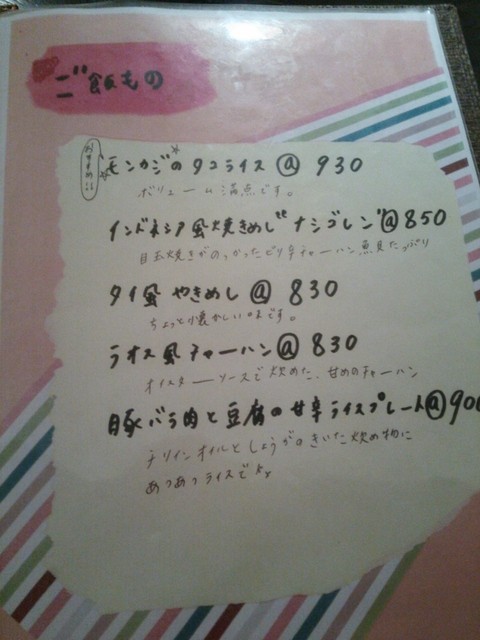 ご飯もの
おすすめ!!
モンカジのタコライス @ 930
ボリューム満点です。
インドネシア風焼きめし"ナシゴレン"@850
目玉焼きがのっかったピリ辛チャーハン 魚貝たっぷり
タイ風 やきめし @ 830
ちょっと懐かしい味です。
ラオス風チャーハン@ 830
オイスターソースで炒めた、甘めのチャーハン
豚バラ肉と豆腐の甘辛ライスプレート@900
チリインオイルとしょうがのきいた炒め物に
あつあつライスで